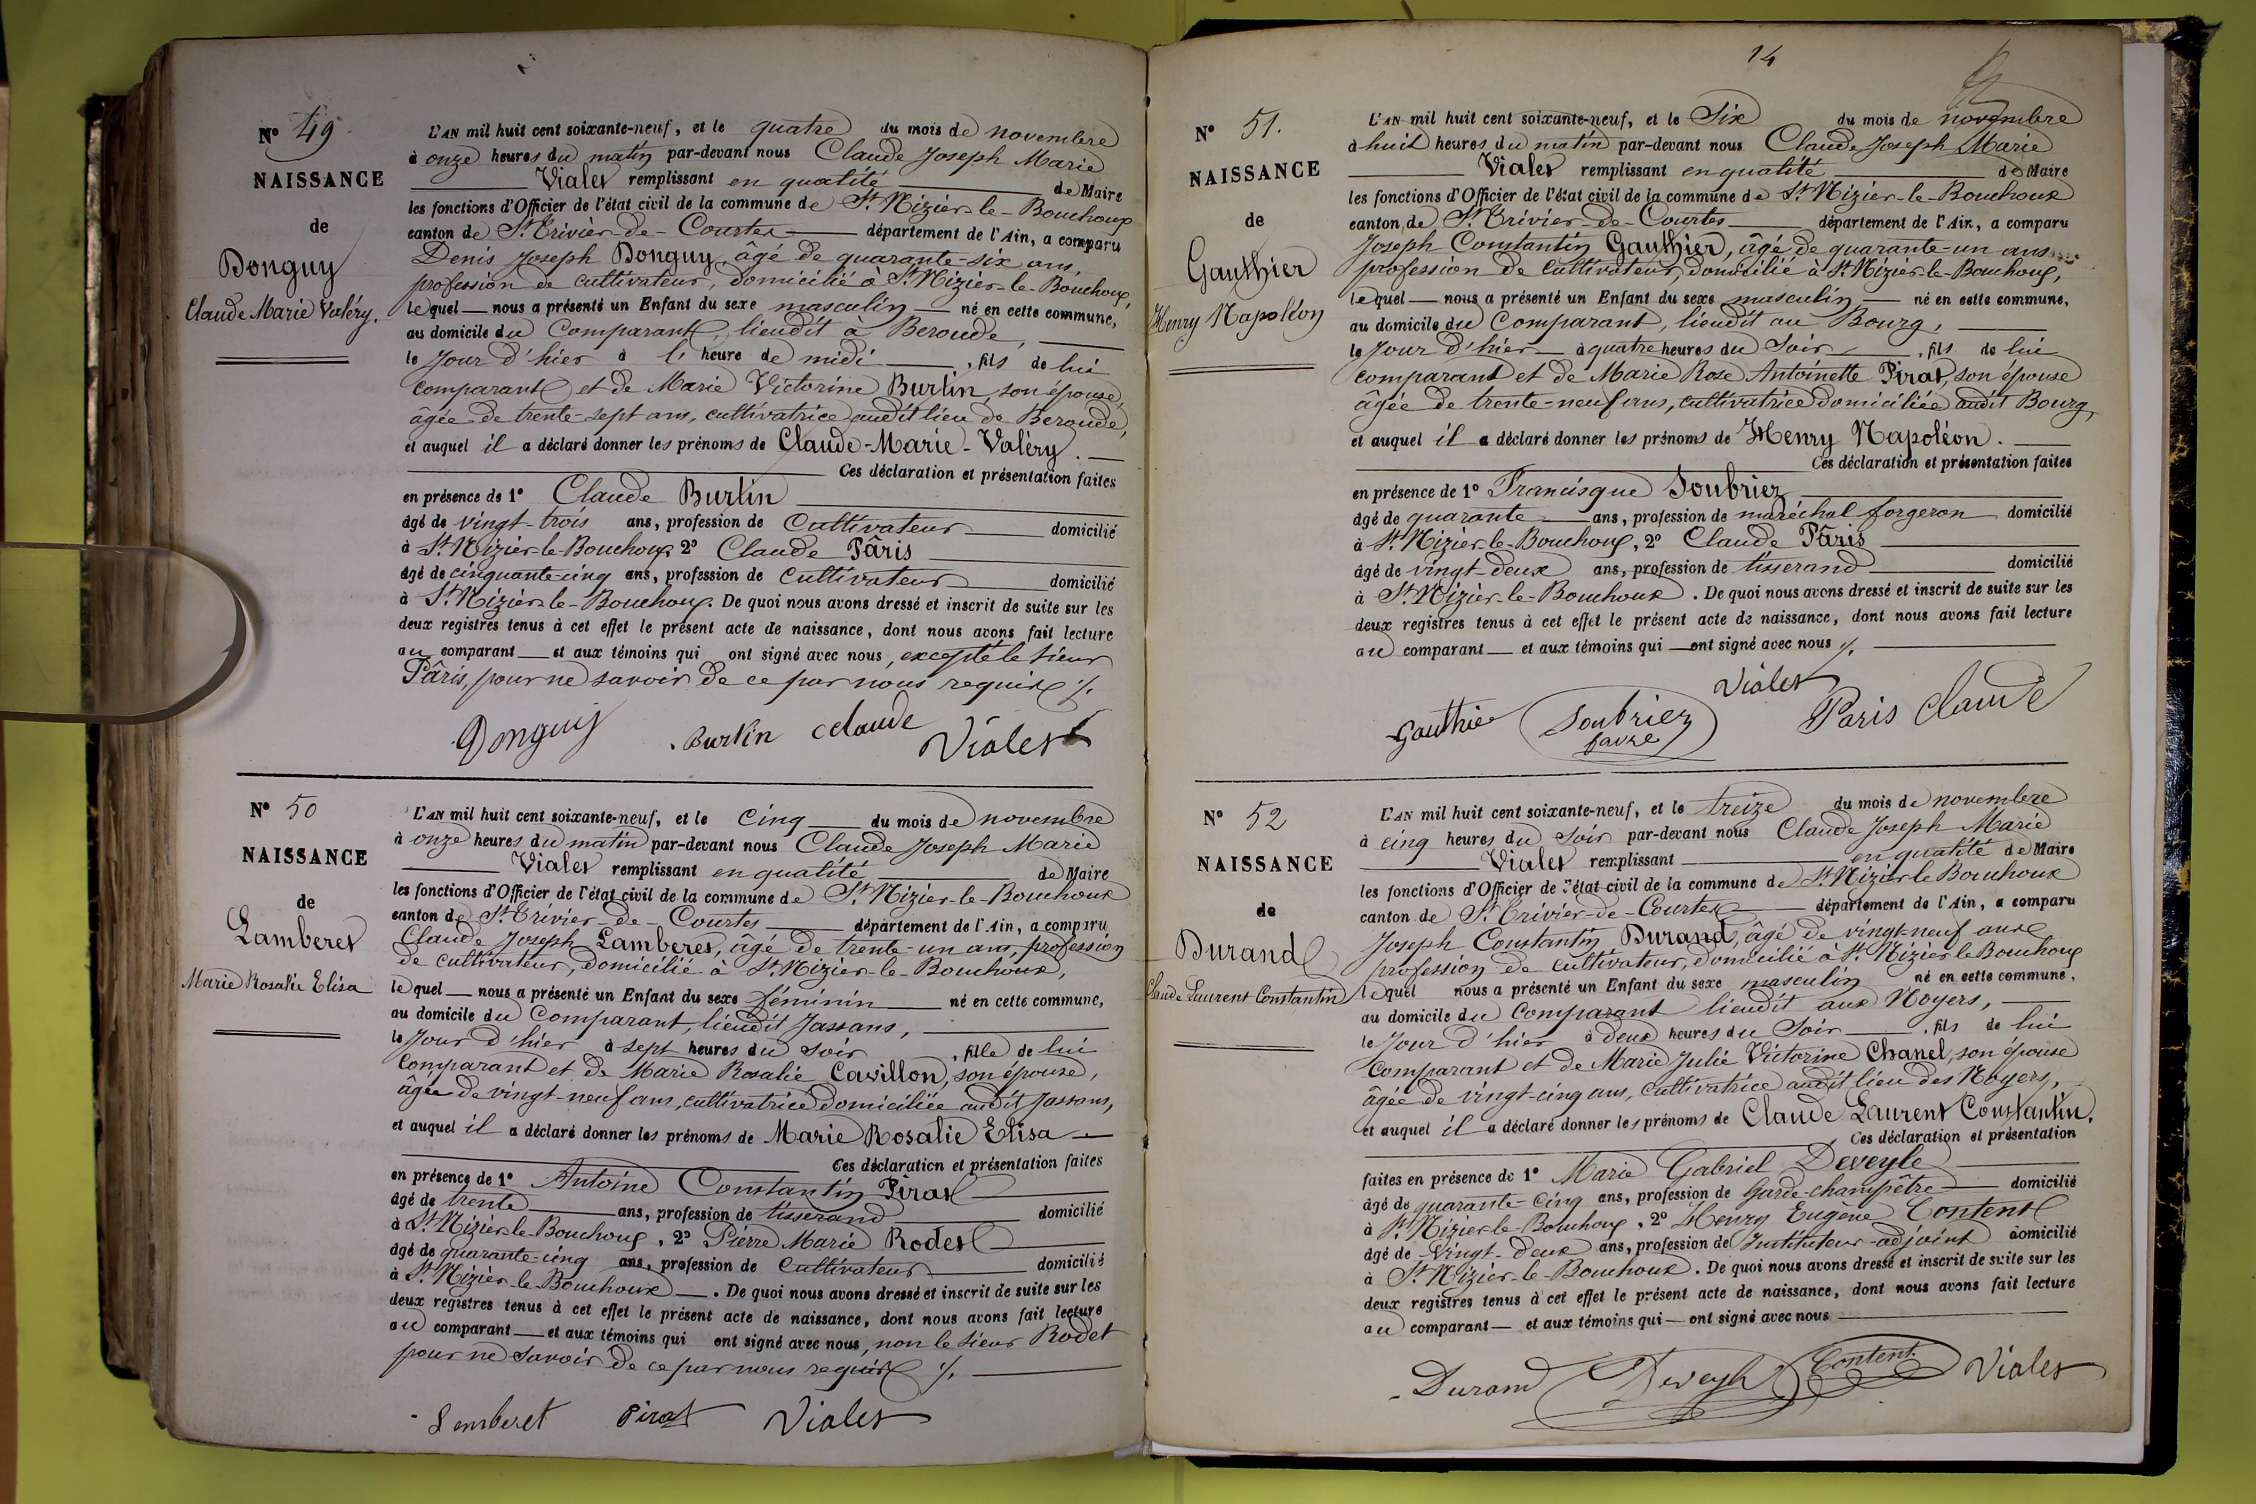 Nº 49
NAISSANCE
de
Donguy
Claude Marie Valéry.
L'AN mil huit cent soixante-neuf, et le quatre du mois de novembre
à onze heures du matin par-devant nous Claude Joseph Marie
Vialet remplissant en qualité de Maire
les fonctions d'Officier de l'état civil de la commune de St Nizier-le-Bouchoux
canton de St Trivier-de-Courtes département de l'Ain, a comparu
Denis Joseph Donguy, âgé de quarante-six ans,
profession de cultivateur, domicilié à St Nizier-le-Bouchoux,
lequel nous a présenté un Enfant du sexe masculin né en cette commune,
au domicile du Comparant, lieudit à Beroude,
le Jour d'hier à l' heure de midi, fils de lui
comparant et de Marie Victorine Burtin, son épouse,
âgée de trente-sept ans, cultivatrice audit lieu de Beroude,
et auquel il a déclaré donner les prénoms de Claude-Marie-Valéry.
Ces déclaration et présentation faites
en présence de 1º Claude Burtin
âgé de vingt-trois ans, profession de Cultivateur domicilié
à St Nizier-le-Bouchoux 2º Claude Pâris
âgé de cinquante-cinq ans, profession de Cultivateur domicilié
à St Nizier-le-Bouchoux. De quoi nous avons dressé et inscrit de suite sur les
deux registres tenus à cet effet le présent acte de naissance, dont nous avons fait lecture
au comparant et aux témoins qui ont signé avec nous, excepté le sieur
Pâris, pour ne savoir de ce par nous requis ./.
Donguy Burtin Claude Vialet
Nº 50
NAISSANCE
de
Lamberet
Marie Rosalie Elisa
L'AN mil huit cent soixante-neuf, et le cinq du mois de novembre
à onze heures du matin par-devant nous Claude Joseph Marie
Vialet remplissant en qualité de Maire
les fonctions d'Officier de l'état civil de la commune de St Nizier-le-Bouchoux
canton de St Trivier-de-Courtes département de l'Ain, a comparu
Claude Joseph Lamberet, âgé de trente-un ans, profession
de cultivateur, domicilié à St Nizier-le-Bouchoux,
lequel nous a présenté un Enfant du sexe féminin né en cette commune,
au domicile du Comparant, lieudit Jassans,
le Jour d'hier à sept heures du soir, fille de lui
Comparant et de Marie Rosalie Cavillon, son épouse,
âgée de vingt-neuf ans, cultivatrice domiciliée audit Jassans,
et auquel il a déclaré donner les prénoms de Marie Rosalie Elisa
Ces déclaration et présentation faites
en présence de 1º Antoine Constantin Pirat
âgé de trente ans, profession de tisserand domicilié
à St Nizier-le-Bouchoux, 2º Pierre Marie Rodet
âgé de quarante-cinq ans, profession de Cultivateur domicilié
à St Nizier-le-Bouchoux. De quoi nous avons dressé et inscrit de suite sur les
deux registres tenus à cet effet le présent acte de naissance, dont nous avons fait lecture
au comparant et aux témoins qui ont signé avec nous, non le sieur Rodet
pour ne savoir de ce par nous requis ./.
Lemberet Pirat Vialet
14
Nº 51.
NAISSANCE
de
Gauthier
Henry Napoléon
L'AN mil huit cent soixante-neuf, et le Six du mois de novembre
à huit heures du matin par-devant nous Claude Joseph Marie
Vialet remplissant en qualité de Maire
les fonctions d'Officier de l'état civil de la commune de St Nizier-le-Bouchoux
canton de St Trivier-de-Courtes département de l'Ain, a comparu
Joseph Constantin Gauthier, âgé de quarante-un ans
profession de Cultivateur, domicilié à St Nizier-le-Bouchoux,
lequel nous a présenté un Enfant du sexe masculin né en cette commune,
au domicile du Comparant, lieudit au Bourg,
le Jour d'hier à quatre heures du Soir, fils de lui
comparant et de Marie Rose Antoinette Pirat, son épouse
âgée de trente-neuf ans, cultivatrice domiciliée audit Bourg,
et auquel il a déclaré donner les prénoms de Henry Napoléon.
Ces déclaration et présentation faites
en présence de 1º Francisque Soubriez
âgé de quarante ans, profession de maréchal forgeron domicilié
à St Nizier-le-Bouchoux, 2º Claude Pâris
âgé de vingt-deux ans, profession de tisserand domicilié
à St Nizier-le-Bouchoux. De quoi nous avons dressé et inscrit de suite sur les
deux registres tenus à cet effet le présent acte de naissance, dont nous avons fait lecture
au comparant et aux témoins qui ont signé avec nous ./.
Vialet
Gauthier Soubriez Paris Claude
Nº 52
NAISSANCE
de
Durand
Claude Laurent Constantin
L'AN mil huit cent soixante-neuf, et le treize du mois de novembre
à cinq heures du Soir par-devant nous Claude Joseph Marie
Vialet remplissant en qualité de Maire
les fonctions d'Officier de l'état civil de la commune de St Nizier le Bouchoux
canton de St Trivier-de-Courtes département de l'Ain, a comparu
Joseph Constantin Durand, âgé de vingt-neuf ans
profession de cultivateur, domicilié à St Nizier le Bouchoux
lequel nous a présenté un Enfant du sexe masculin né en cette commune,
au domicile du Comparant lieudit aux Noyers,
le Jour d'hier à deux heures du Soir, fils de lui
Comparant et de Marie Julie Victorine Chanel, son épouse
âgée de vingt-cinq ans, cultivatrice audit lieu des Noyers,
et auquel il a déclaré donner les prénoms de Claude Laurent Constantin.
Ces déclaration et présentation
faites en présence de 1º Marie Gabriel Deveyle
âgé de quarante-cinq ans, profession de Garde-champêtre domicilié
à St Nizier-le-Bouchoux, 2º Henry Eugène Content
âgé de vingt-deux ans, profession de Instituteur-adjoint domicilié
à St Nizier-le-Bouchoux. De quoi nous avons dressé et inscrit de suite sur les
deux registres tenus à cet effet le présent acte de naissance, dont nous avons fait lecture
au comparant et aux témoins qui ont signé avec nous
Durand Deveyle Content Vialet